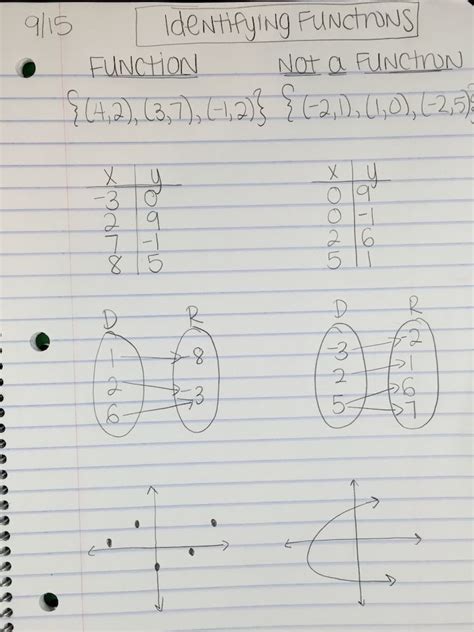 9/15 Identifying Functions
FUNCTION Not a Function
{(4,2), (3,7), (-1,2)} {(-2,1), (1,0), (-2,5)}
x y x y
-3 0 0 9
2 9 0 -1
7 -1 2 6
8 5 5 1
D R D R
1 8 -3 -2
2 -3 2 1
6 5 6
7